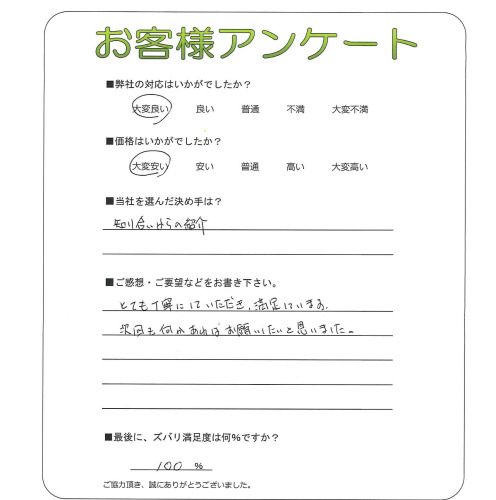 お客様アンケート
■弊社の対応はいかがでしたか？
大変良い 良い 普通 不満 大変不満
■価格はいかがでしたか？
大変安い 安い 普通 高い 大変高い
■当社を選んだ決め手は？
知り合いからの紹介
■ご感想・ご要望などをお書き下さい。
とても丁寧にしていただき、満足しています。
次回も何かあればお願いしたいと思いました。
■最後に、ズバリ満足度は何％ですか？
100 ％
ご協力頂き、誠にありがとうございました。